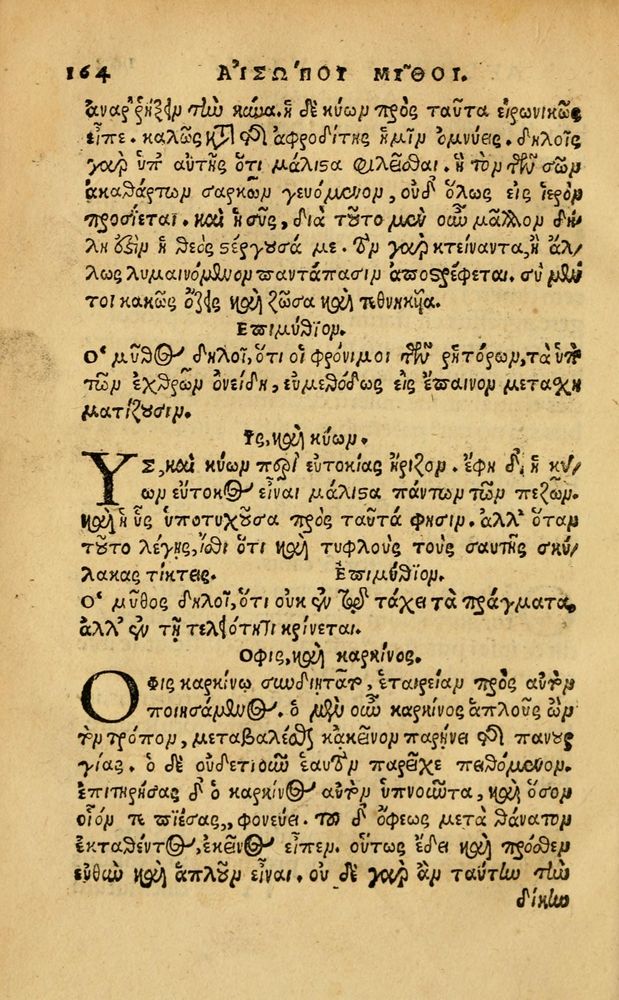 164 ΑἸΣΩΠΟΥ ΜΥ͂ΘΟΙ.
ἀναῤῥήξειν τὴν κύνα. ἡ δὲ κύων πρὸς ταῦτα εἰρωνικῶς
εἶπε. καλῶς κατὰ τῆς ἀφροδίτης ἡμῖν ὀμνύεις. δηλοῖς
γὰρ ὑπ' αὐτῆς ὅτι μάλιστα φιλεῖσθαι. ἣ τὸν τῶν σῶν
ἀκαθάρτων σαρκῶν γευόμενον, οὐδ' ὅλως εἰς ἱερὸν
προσίεται. καὶ ἡ σῦς, διὰ τοῦτο μὲν οὖν μᾶλλον δή/
λη ἐστὶν ἡ θεὸς στέργουσά με. τὸν γὰρ κτείναντα, ἢ ἄλ/
λως λυμαινόμενον παντάπασιν ἀποστρέφεται. σὺ μέν
τοι κακῶς ὄζεις καὶ ζῶσα καὶ τεθνηκυῖα.
Ἐπιμύθιον.
Ὁ μῦθος δηλοῖ, ὅτι οἱ φρόνιμοι τῶν ῥητόρων, τὰ ὑπὸ
τῶν ἐχθρῶν ὀνείδη, εὐμεθόδως εἰς ἔπαινον μετασχη
ματίζουσιν.
Ὗς, καὶ κύων.
ΥΣ, καὶ κύων περὶ εὐτοκίας ἤριζον. ἔφη δ' ἡ κύ/
ων εὔτοκος εἶναι μάλιστα πάντων τῶν πεζῶν.
καὶ ἡ ὗς ὑποτυχοῦσα πρὸς ταῦτά φησιν. ἀλλ' ὅταν
τοῦτο λέγῃς, ἴσθι ὅτι καὶ τυφλοὺς τοὺς σαυτῆς σκύ/
λακας τίκτεις. Ἐπιμύθιον.
Ὁ μῦθος δηλοῖ, ὅτι οὐκ ἐν τῷ τάχει τὰ πράγματα,
ἀλλ' ἐν τῇ τελειότητι κρίνεται.
Ὄφις, καὶ καρκίνος.
ΟΦις καρκίνῳ συνδιῃτᾶτο, ἑταιρείαν πρὸς αὐτὸν
ποιησάμενος. ὁ μὲν οὖν καρκίνος ἁπλοῦς ὢν
τὸν τρόπον, μεταβαλέσθαι κἀκεῖνον παρῄνει τῆς πανουρ
γίας. ὁ δὲ οὐδετιοῦν ἑαυτὸν παρεῖχε πειθόμενον.
ἐπιτηρήσας δ' ὁ καρκίνος αὐτὸν ὑπνοῦντα, καὶ ὅσον
οἷόν τε πιέσας,, φονεύει. τοῦ δ' ὄφεως μετὰ θάνατον
ἐκταθέντος, ἐκεῖνος εἶπεν. οὕτως ἔδει καὶ πρόσθεν
εὐθὺν καὶ ἁπλοῦν εἶναι. οὐ δὲ γὰρ ἂν ταύτην τὴν
δίκην